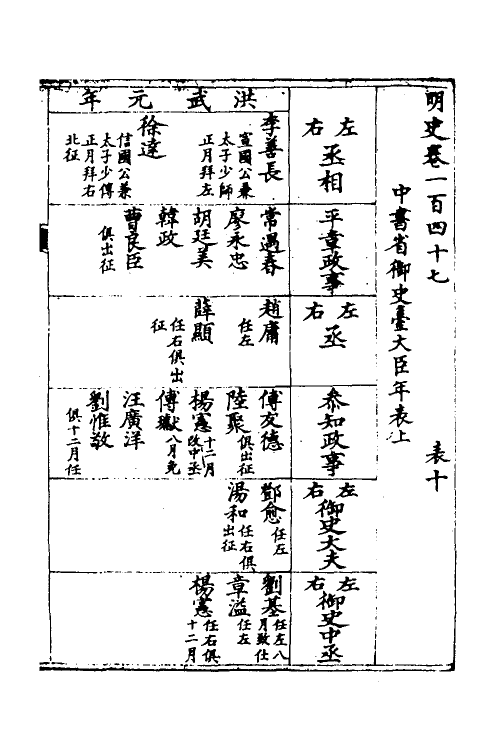 明史卷一百四十七
表十
中書省御史臺大臣年表上
左右丞相
平章政事
左右丞
叅知政事
左右御史大夫
左右御史中丞
洪武元年
李善長
宣國公兼
太子少師
正月拜左
徐達
信國公兼
太子少傅
正月拜右
北征
常遇春
廖永忠
胡廷美
韓政
曹良臣
俱出征
趙庸
任左
薛顯
任右俱出
征
傅友德
陸聚
俱出征
楊憲
十二月
改中丞
傅瓛
八月免
汪廣洋
劉惟敬
俱十二月任
鄧愈
任左
湯和
任右俱
出征
劉基
任左八
月致仕
章溢
任左
楊憲
任右俱
十二月